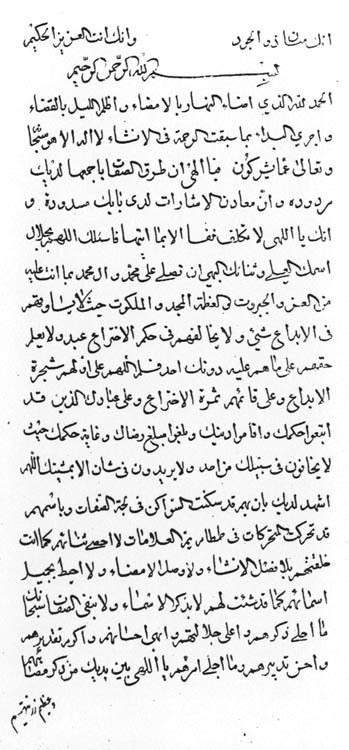 انك منان ذو الجود وانك انت العزيز الحكيم
بسم الله الرحمن الرحيم
الحمد لله الذي اضاء النهار بالامضاء واظلم الليل بالقضاء
واجرى البداء بما سبقت الرحمة فى الانشاء لا اله الا هو سبحانه
وتعالى عما يشركون فيا الهى ان طرق الصفات باجمعها لديك
مردودة وان معادن الاشارات لدى بابك مسدودة و
انك يا اللهى لا تكلف نفسا الا بما اتيتها فاسئلك اللهم بجلال
اسمك العلى وثنائك البهى ان تصلى على محمد وال محمد بما انت عليه
من العز والجبروت والعظمة والملكوت حيث لا يساوقهم
فى الابداع شئ ولا يخالفهم فى حكم الاختراع عبد ولا يعلم
حقهم على ما هم عليه دونك احد اللهم على اول شجرة
الابداع وعلى ثمرة الاختراع وعلى عبادك الذين قد
اتبعوا حكمك مبلغ رضاك وغاية حكمك حيث
لا يخافون فى سبيلك من احد ولا يريدون فى شان الا بمشيتك اللهم
اشهد لديك بان بهم قد سكنت السواكن فى الصفات وباسمهم
قد تحركت المتحركات فى العلامات لا احصى ثنائهم كما انت
خلقتهم بلا فصل الانشاء ولا وصل الامضاء ولا احيط بجميل
اسمائهم كما قد شئت لهم لا بذكر الاسماء ولا بنفى الصفات سبحانك
ما احلى ذكرهم واعلى جلالتهم وابهى واكرم تقديرهم
واحسن تدبيرهم وما اجلى امرهم يا اللهى بين يديك من ذكر